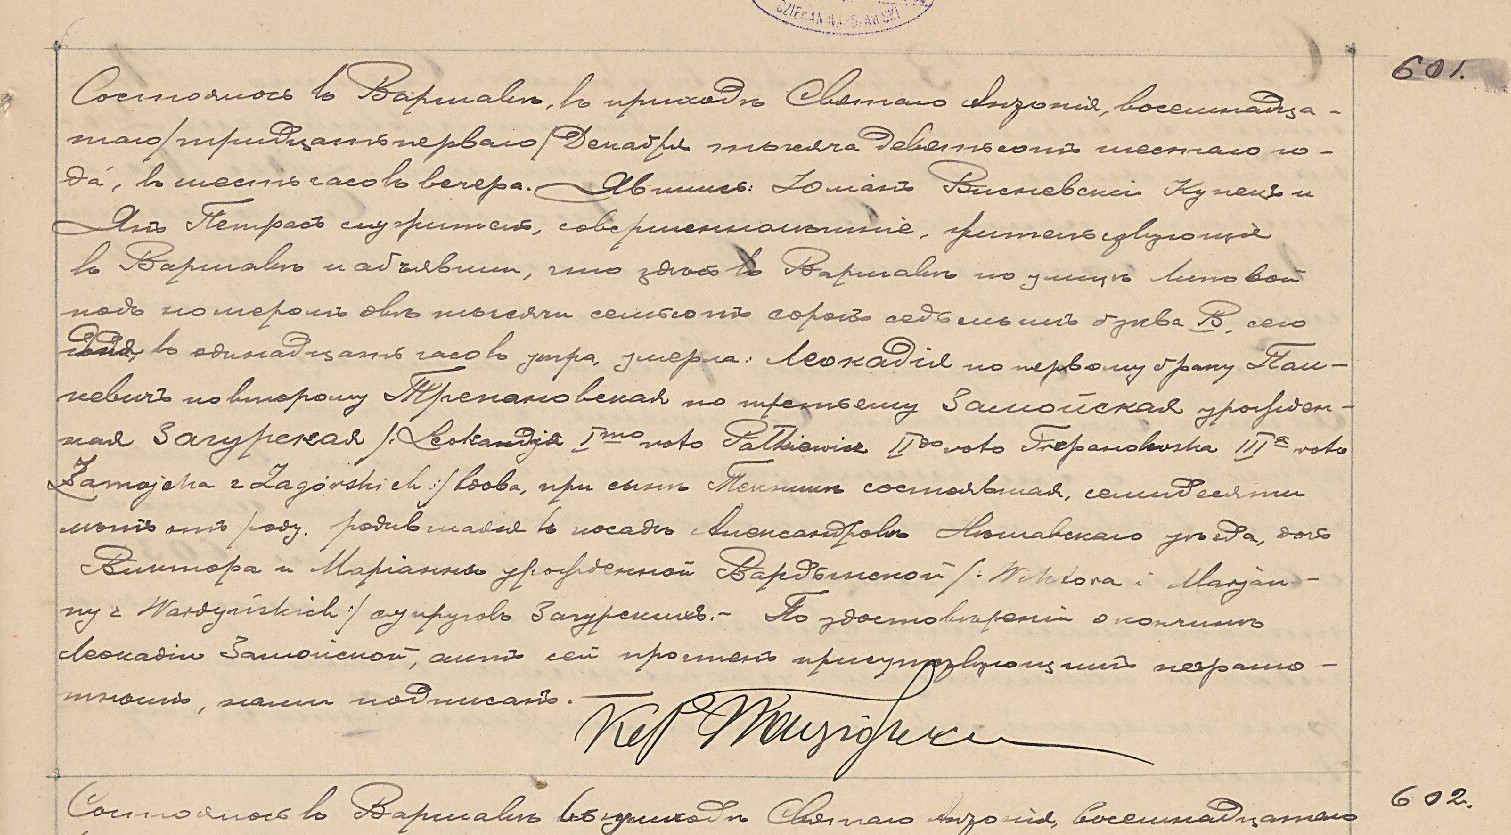 DZIEKAN WARSZAWSKI
601.
Состоялось въ Варшавѣ, въ приходѣ Святаго Антонія, восемнадца-
таго /тридцать перваго/ Декабря тысяча девятьсотъ шестаго го-
да, въ шесть часовъ вечера. Явились: Юліанъ Висневскій Купецъ и
Янъ Петрасъ служитель, совершеннолѣтніе, жительствующіе
въ Варшавѣ и объявили, что здѣсь въ Варшавѣ по улицѣ Липовой
подъ номеромъ двѣ тысячи семьсотъ сорокъ седьмымъ буква В, сего
дня, въ одинадцать часовъ утра, умерла: Леокадія по первому браку Пат-
кевичъ по второму Трепановская по третьему Замойская урожден-
ная Загурская /:Leokadyja Imo voto Patkiewicz IIdo voto Trepanowska III voto
Zamojska z Zagórskich:/ вдова, при сынѣ состоявшая, семидесяти
лѣтъ отъ роду, родившаяся въ посадѣ Александровѣ Нешавскаго уѣзда, дочь
Виктора и Маріанны урожденной Вардынской /:Wiktora i Maryan-
ny z Wardyńskich:/ супруговъ Загурскихъ.- По удостовѣреніи о кончинѣ
Леокадіи Замойской, актъ сей прочтенъ присутствующимъ неграмо-
тнымъ, нами подписанъ.
602.
Состоялось въ Варшавѣ въ приходѣ Святаго Антонія, восемнадцатаго